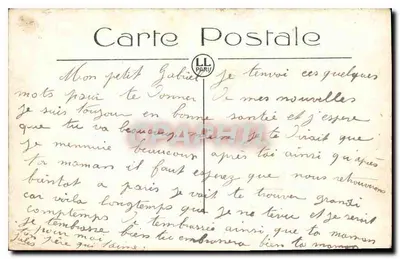 Carte Postale
LL
PARIS
Mon petit Gabriel je t'envoi ces quelques
mots pour te donner de mes nouvelles
je suis toujour en bonne santée et j'espere
que tu va beaucoup je te dirait que
je mennuie beaucoup après toi ainsi qu'après
ta maman il faut esperer que nous retrouvrons
bientot a paris je vait te trouver grandi
car voila longtemps que je ne t'eve et je serait
comptemps j tembrassée ainsi que ta maman
je tembrasse bien tu embrassera bien ta maman
pour moi
ton père qui t'aime